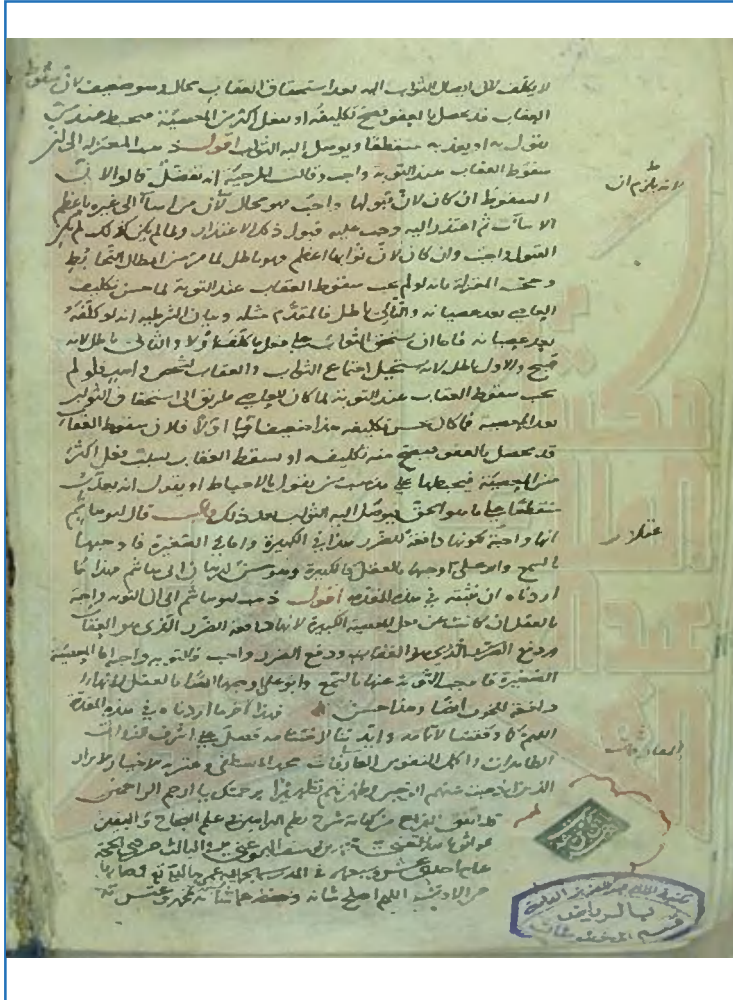 لا يكلف لكن ايصال الثواب اليه بعد استحقاق العقاب محال وهو ضعيف لان سقوط
العقاب قد يحصل بالعفو فيصح تكليفه او بفعل اكثر من المعصية فيحبط عند من
يقول به او يعذبه منقطعا ويوصل اليه الثواب اقول ذهب المعتزلة الى ان
سقوط العقاب عند التوبة واجب وقالت المرجئة انه تفضل قالوا لان
السقوط ان كان لان قبولها واجب فهو محال لان من اساء الى غيره باعظم
الاساآت ثم اعتذر اليه وجب عليه قبول ذلك الاعتذار ولما لم يكن كذلك لم يكن
القبول واجب وان كان لان ثوابها اعظم فهو باطل لما مر من ابطال التحابط
المعتزلة بانه لو لم يجب سقوط العقاب عند التوبة لما حسن تكليف
العاصي بعد عصيانه والتالي باطل فالمقدم مثله وبيان الشرطية انه لو كلفه
بعد عصيانه فاما ان يستحق الثواب على فعل ما كلفه او لا والثاني باطل لانه
قبيح والاول باطل لانه يستحيل اجتماع الثواب والعقاب لشخص واحد فلو لم
يجب سقوط العقاب عند التوبة لما كان للعاصي طريق الى استحقاق الثواب
بعد المعصية فما كان يحسن تكليفه هذا ضعيف اما اولا فلان سقوط العقاب
قد يحصل بالعفو فيصح منه تكليفه او يسقط العقاب بسبب فعل اكثر
من المعصية فيحبطها على مذهب من يقول بالاحباط او يقول انه يعذب
منقطعا على ما هو الحق ويوصل اليه الثواب بعد ذلك قال ابو هاشم
انها واجبة لكونها دافعة للضرر هذا في الكبيرة واما في الصغيرة فاوجبها
بالسمع وابو علي اوجبها بالعقل كالكبيرة فهذا ما
اردناه ان نثبته في هذه المقدمة اقول ذهب ابو هاشم الى ان التوبة واجبة
بالعقل ان كانت عن فعل المعصية الكبيرة لانها دافعة للضرر الذي هو العقاب
ودفع الضرر واجب فالتوبة واجبة اما المعصية
الصغيرة فاوجب التوبة عنها بالسمع وابو علي اوجبها ايضا بالعقل لانها
دافعة للخوف ايضا وهذا حسن فهذا آخر ما اردناه في هذه المقدمة
اللهم كما وفقتنا لاتمامه وايدتنا لاختتامه فصل على اشرف الذوات
الطاهرات واكمل النفوس العارفات محمد المصطفى وعترته الاخيار الابرار
الذين اذهبت عنهم الرجس وطهرتهم تطهيرا برحمتك يا ارحم الراحمين
قد اتفق الفراغ من كتابة شرح نظم البراهين في علم
اللهم اصلح شانه
لانه يلزم ان
عقلا
العارفات
مكتبة الملك عبد العزيز العامة
بالرياض
قسم المخطوطات